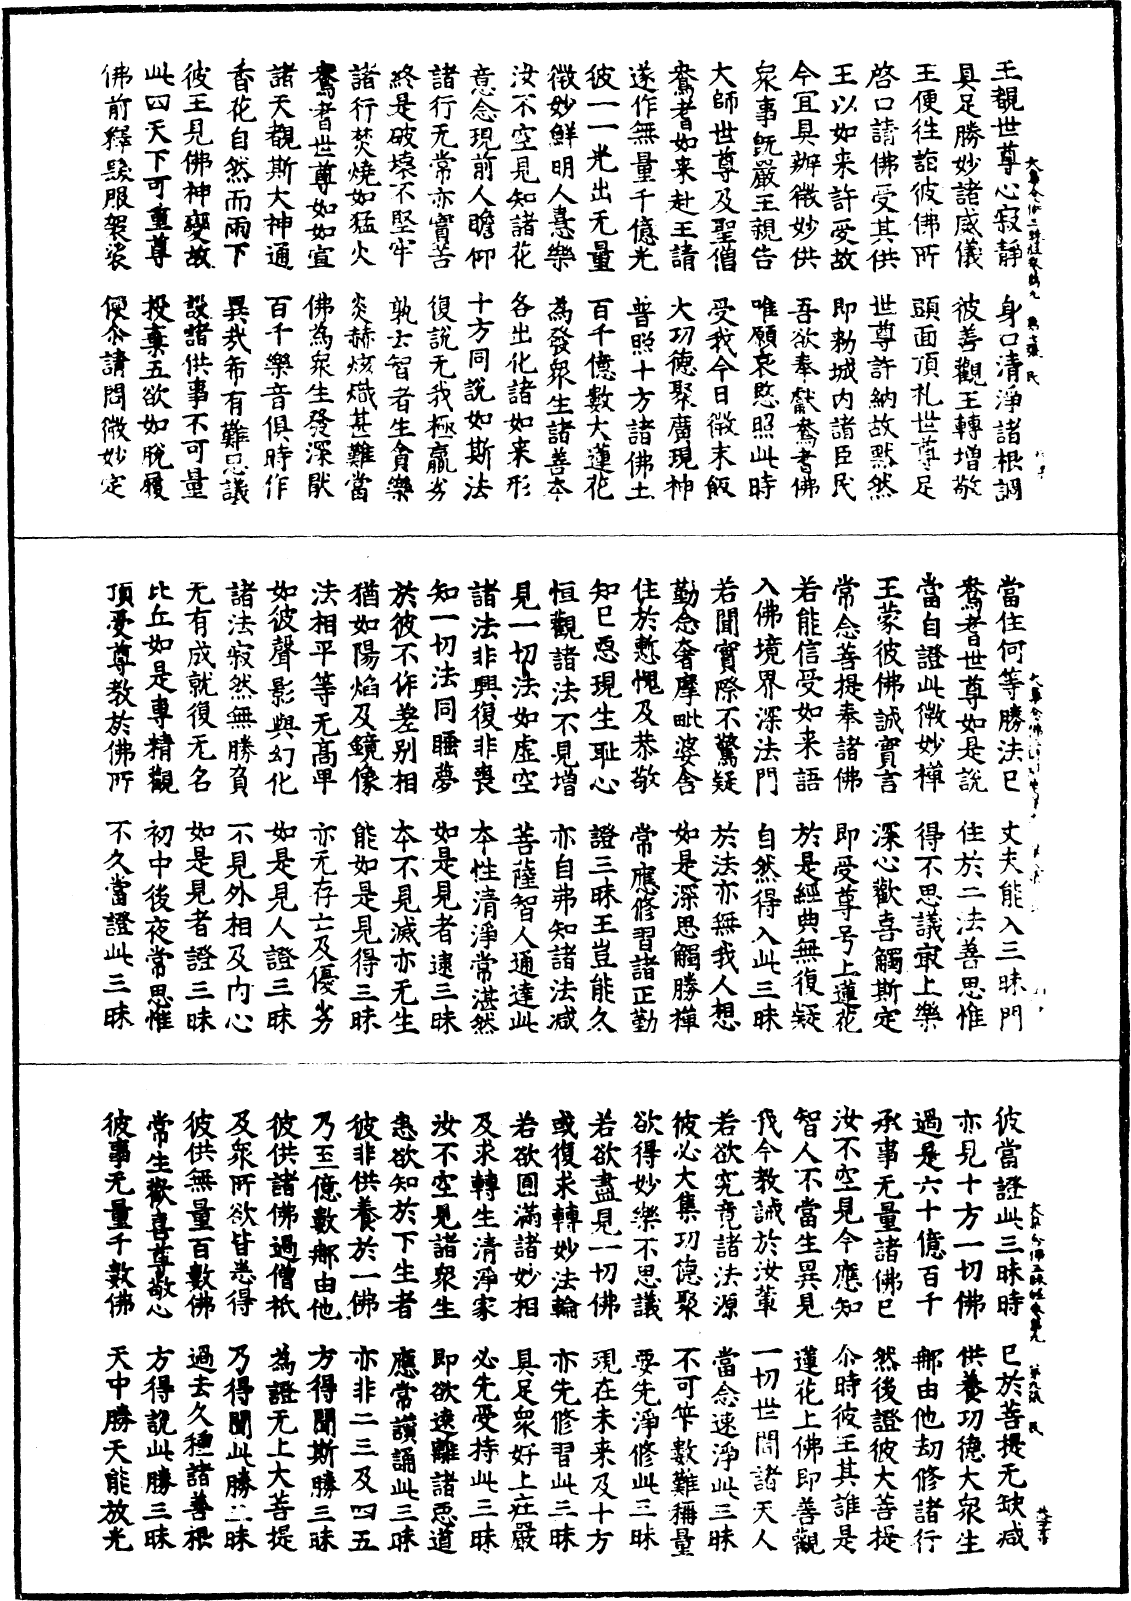 王覩世尊心寂靜　身口清淨諸根調
具足勝妙諸威儀　彼善觀王轉增敬
王便往詣彼佛所　頭面頂礼世尊足
啓口請佛受其供　世尊許納故黙然
王以如来許受故　即勑城內諸臣民
今冝具辦微妙供　吾欲奉獻耆闍佛
衆事旣嚴王親告　唯願哀愍照此時
大師世尊及聖僧　受我今日微末飯
耆闍如来赴王請　大功德聚廣現神
遂作無量千億光　普照十方諸佛土
彼一一光出无量　百千億數大蓮花
微妙鮮明人憙樂　為發衆生諸善本
汝不空見知諸花　各出化諸如来形
意念現前人瞻仰　十方同說如斯法
諸行无常亦實苦　復說无我極羸劣
終是破壞不堅牢　孰士智者生貪樂
諸行焚燒如猛火　炎赫炫熾甚難當
世尊如如宣　佛為衆生發深猒
諸天覩斯大神通　百千樂音俱時作
香花自然而雨下　異哉希有難思議
彼王見佛神變故　設諸供事不可量
此四天下可重尊　投棄五欲如脫屣
佛前釋髮服袈裟　便尒請問微妙定
當住何等勝法已　丈夫能入三昧門
世尊如是說　住於二法善思惟
當自證此微妙禪　得不思議㝡上樂
王蒙彼佛誠實言　深心歡喜觸斯定
常念菩提奉諸佛　即受尊号上蓮花
若能信受如来語　於是經典無復疑
入佛境界深法門　自然得入此三昧
若聞實際不驚疑　於法亦無我人想
勤念奢摩毗婆舍　如是深思觸勝禪
住於慙愧及恭敬　常應修習諸正勤
知已惡現生耻心　證三昧王豈能久
恒觀諸法不見增　亦自弗知諸法减
見一切法如虛空　菩薩智人通達此
諸法非興復非喪　本性清淨常湛然
知一切法同睡夢　如是見者逮三昧
於彼不作差别相　本不見滅亦无生
猶如陽焰及鏡像　能如是見得三昧
法相平等无髙卑　亦无存亡及優劣
如彼聲影與幻化　如是見人證三昧
諸法寂然無勝負　不見外相及內心
无有成就復无名　如是見者證三昧
比丘如是專精觀　初中後夜常思惟
頂受尊教於佛所　不久當證此三昧
彼當證此三昧時　已於菩提无缺减
亦見十方一切佛　供養功德大衆生
過是六十億百千　那由他劫修諸行
承事无量諸佛已　然後證彼大菩提
汝不空見今應知　尒時彼王其誰是
智人不當生異見　蓮花上佛即善觀
我今教誡於汝軰　一切世間諸天人
若欲究竟諸法源　當念速淨此三昧
彼必大集功德聚　不可筭數難稱量
欲得妙樂不思議　要先淨修此三昧
若欲盡見一切佛　現在未来及十方
或復求轉妙法輪　亦先修習此三昧
若欲圓滿諸妙相　具足衆好上莊嚴
及求轉生清淨家　必先受持此三昧
汝不空見諸衆生　即欲速離諸惡道
悉欲知於下生者　應常讃誦此三昧
彼非供養於一佛　亦非二三及四五
乃至億數那由他　方得聞斯勝三昧
彼供諸佛過僧祇　為證无上大菩提
及衆所欲皆悉得　乃得聞此勝三昧
彼供無量百數佛　過去久種諸善根
常生歡喜尊敬心　方得說此勝三昧
彼事无量千數佛　天中勝天能放光